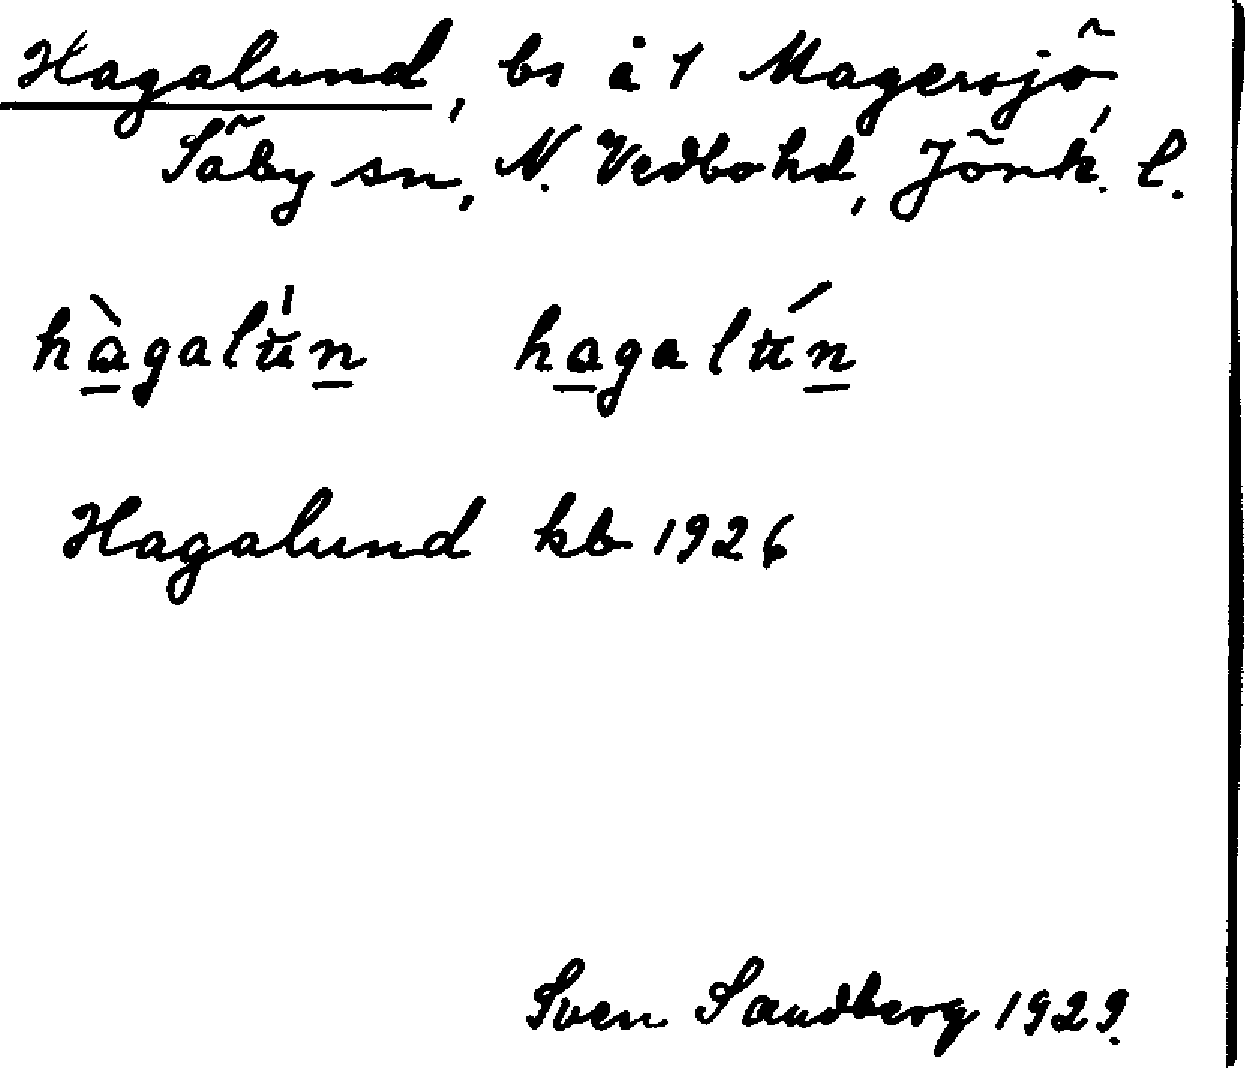 Hagalund, bs å 1 Magersjö,
Säby sn, N. Vedbo hd, Jönk. l.
hàgalu̍n hagalún
Hagalund kb 1926
Sven Sandberg 1929.